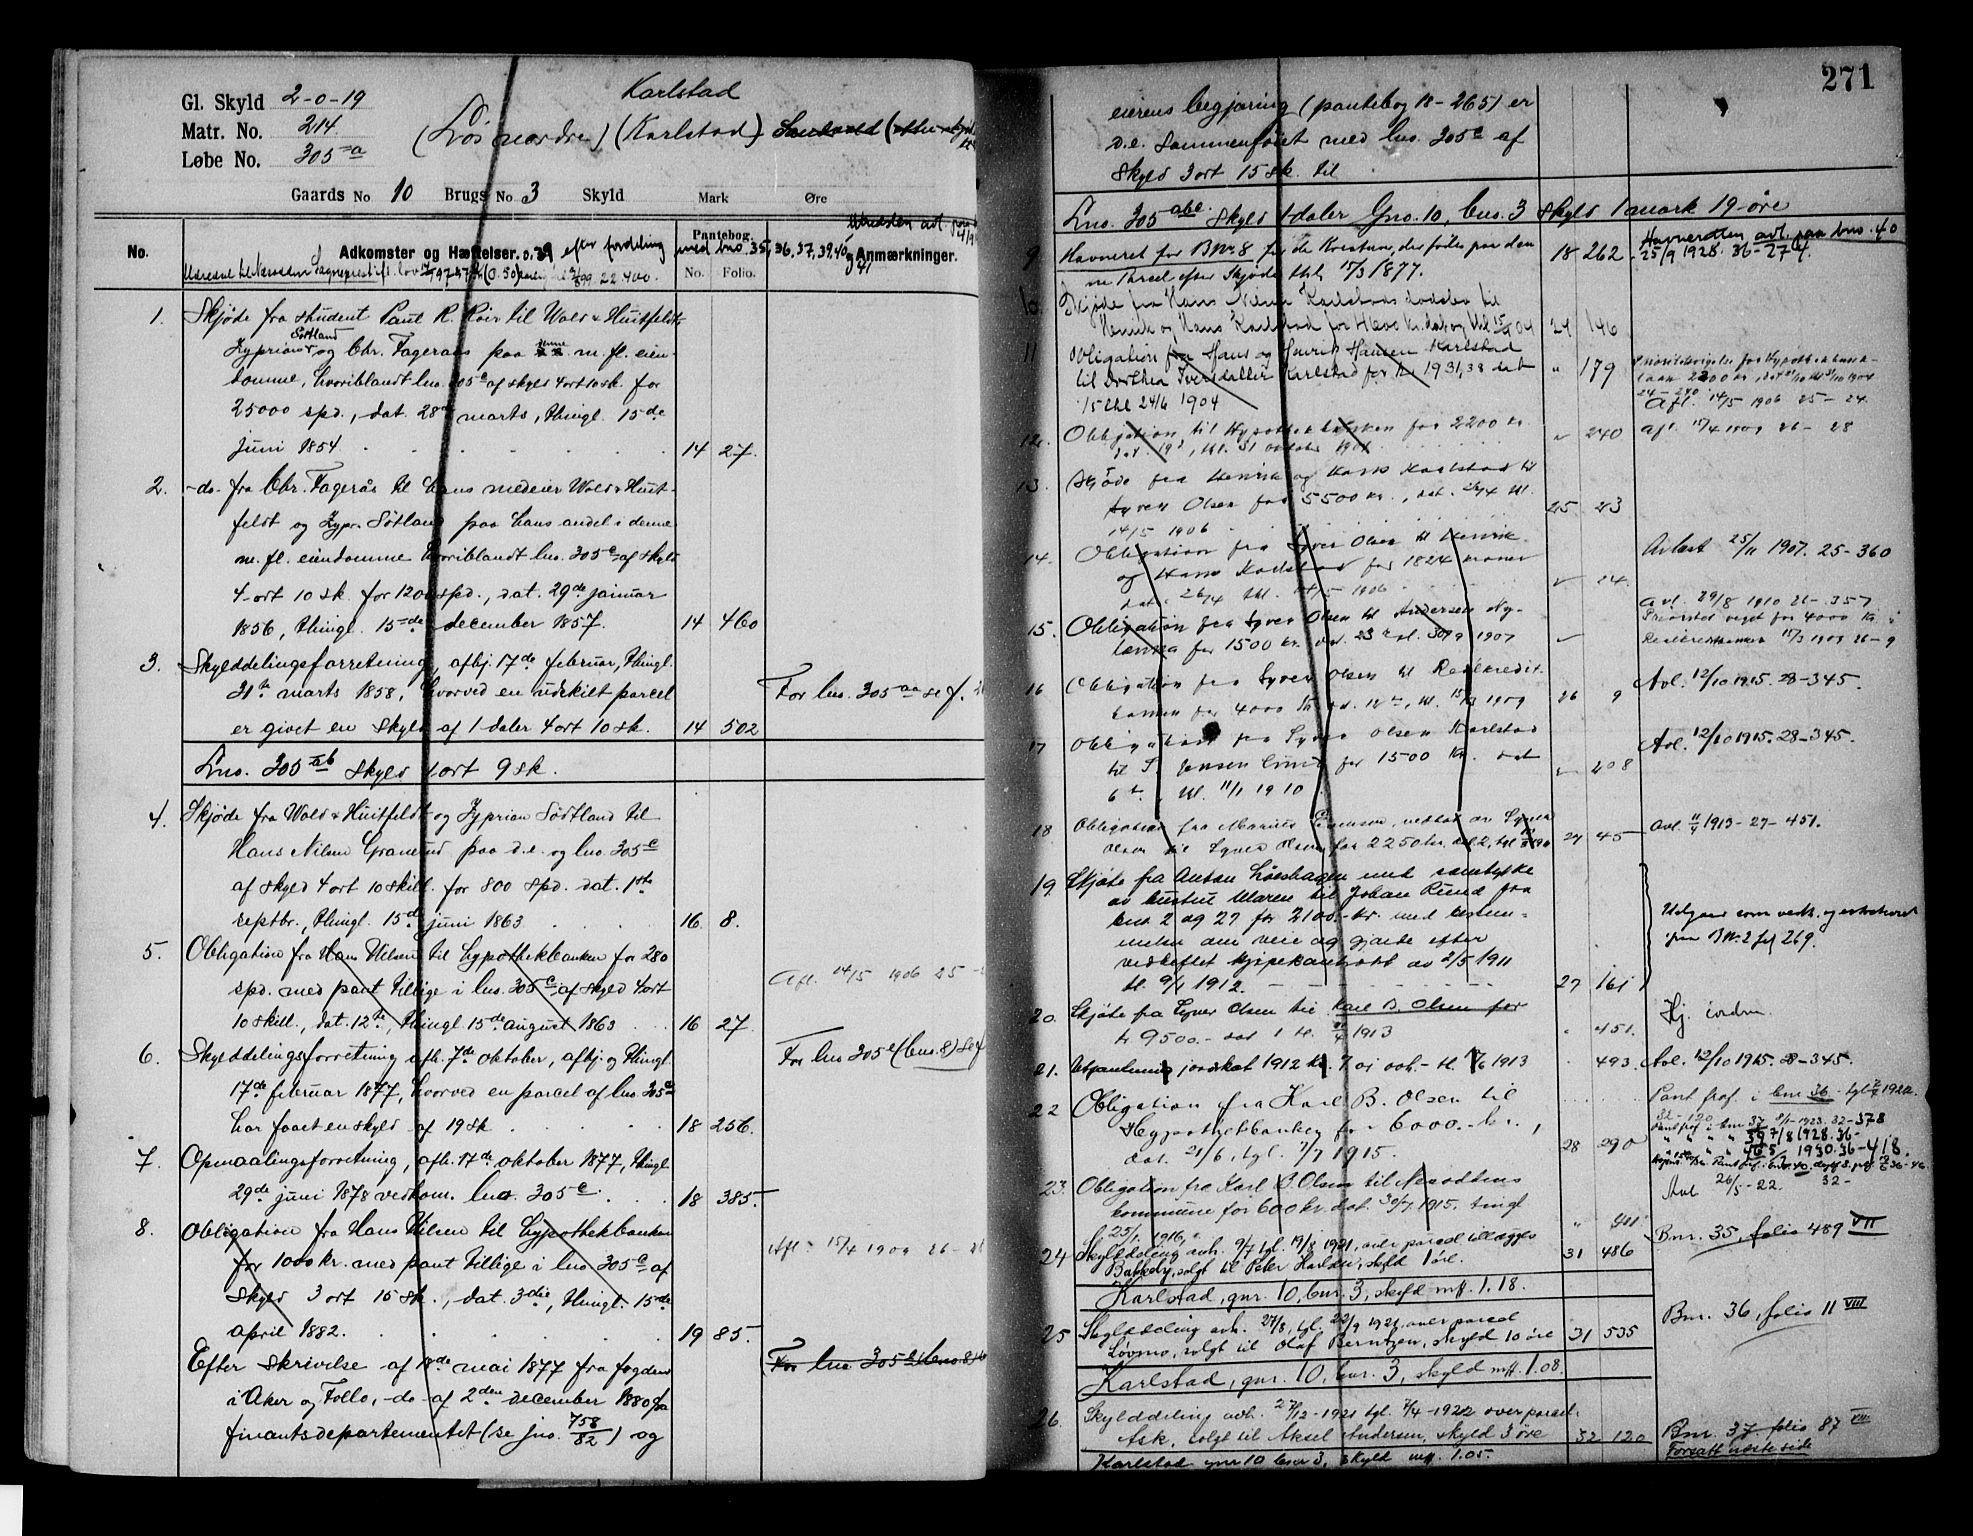 Gl. Skyld 2-0-19
Matr. No. 214
Løbe No. 305 a
Karlstad
(Løs nordre) (Karlstad)
Gaards No 10 Brugs No 3 Skyld Mark Øre
No.
Adkomster og Hæftelser.
efter fordeling
Pantebog.
No. Folio.
med bno 35, 36, 37, 39, 40 og 41
Anmærkninger.
1. Skjøde fra student Paul R. Roir til Wold & Huitfeldt
Zyprian Sötland og Chr. Fageraas paa denne m. fl. eien-
domme, hvoriblandt lno. 305 c af skyld 4 ort 10 sk. for
25000 spd., dat. 28de marts, thingl. 15de
juni 1854 14 27.
2. -do- fra Chr. Fagerås til hans medeier Wold & Huit-
feldt og Zypr. Sötland paa hans andel i denne
m. fl. eiendomme hvoriblandt lno. 305 c af skyld
4 ort 10 sk. for 1200 spd., dat. 29de januar
1856, thingl. 15de december 1857. 14 460
3. Skylddelingsforretning, afhj. 17de februar, thingl.
31te marts 1858, hvorved en udskilt parcel
er givet en skyld af 1 daler 4 ort 10 sk. 14 502
For lno. 305 aa se f.
Lno. 305 ab skyld 1 ort 9 sk.
4. Skjøde fra Wold & Huitfeldt og Zyprian Södtland til
Hans Nilsen Granerud paa d.e. og lno. 305 c
af skyld 4 ort 10 skill. for 800 spd. dat. 1ste
septbr., thingl. 15de juni 1863 16 8.
5. Obligation fra Hans Nilsen til Hypothekbanken for 280
spd. med pant tillige i lno. 305 c af skyld 4 ort
10 skill., dat. 12te, thingl. 15de august 1863 16 27
Afl. 14/5 1906 25-
6. Skylddelingsforretning afh. 7de oktober, afhj. og thingl.
17de februar 1877, hvorved en parcel af lno. 305 c
har faaet en skyld af 19 sk 18 256.
For lno 305 e (bno. 8) se f
7. Opmaalingsforretning, afh. 17de oktober 1877, thingl.
29de juni 1878 vedkom. lno. 305 c 18 385
8. Obligation fra Hans Nilsen til Hypothekbanken
for 1000 kr. med pant tillige i lno 305 c af
skyld 3 ort 15 sk., dat. 3die, thingl. 15de
april 1882. 19 85.
Afl. 15/4 1909 26-28
Efter skrivelse af 18de mai 1877 fra fogden
i Aker og Follo, -do- af 2den december 1880 fra
finantsdepartementet (se jno. 758/82) og
271
eierens begjæring (pantebog 18-265) er
d.e. sammenföiet med lno. 305 c af
skyld 3 ort 15 sk. til
Lno. 305 abc. skyld 1 daler Gno. 10, bno. 3 skyld 1 mark 19 öre
9 Havneret for B№ 8 for de Kreaturer, der födes paa den
ne Parcel efter Skjøde thl. 15/3 1877. 18 262
Havneretten avl. paa bno. 40
25/9 1928. 36-274.
10. Skjøde fra Hans Nilsen Karlstads dødsbo til
Henrik og Hans Karlstad for 4600 kr. dat. og thl 15/4 04 24 146
11 Obligation fra Hans og Henrik Hansen Karlstad
til Dorthea Iversdatter Karlstad for kr 1931,38 dat
15 thl 24/6 1904 " 179
Afl. 14/5 1906 25-24.
12. Obligation til Hypothekbanken for 2200 kr.
dat. 19de, thl. 31 oktober 1904 " 240
Afl. 15/4 1909 26-28
13. Skjøde fra Henrik og Hans Karlstad til
Syver Olsen for 5500 kr., dat. 26/4 thl.
14/5 1906 25 23
14. Obligation fra Syver Olsen til Henrik
og Hans Karlstad for 1824 kroner
dat. 26/4 thl. 14/5 1906 " 24.
Avlæst 25/11 1907. 25-360
15. Obligation fra Syver Olsen til Andersen Ny-
lænna for 1500 kr. dat. 23de tl. 30/9 1907
Avl. 29/8 1910 26-357
Prioritet veget for 4000 Kr. i
16 Obligation fra Syver Olsen til Realkredit
banken for 4000 Kr. dat. 12te, tl. 15/3 1909 26 9
Avl. 12/10 1915. 28-345.
17 Obligation fra Syver Olsen Karlstad
til T. Jensen Grind for 1500 kr. dat
6te, tl. 11/1 1910 " 208
Avl. 12/10 1915. 28-345.
18 Obligation fra Marius Hansen, vedtat av Syver
Olsen til Syver Olsen for 2250 kr. 27 45
Avl. 11/4 1913-27-451.
19 Skjøte fra Anton Løeshagen med samtykke
av hustru Maren til Johan Rund fra
bno 2 og 27 for 2100.- kr. med bestem-
melse om vei og gjærde efter
vedheftet kjøpekontrakt av 2/5 1911
tl. 9/1 1912. 27 161
Utgaar som vedk. og extraheret
paa B№ 2 fol 269.
20. Skjøte fra Syver Olsen til Karl B. Olsen for
kr 9500.- dat 1 tl. 11/4 1913 " 451.
Hj. iorden
21. Utpantning jordskat 1912 kr. 7 01 ovb. - tl. 4/6 1913 " 493.
Avl. 12/10 1915. 28-345.
22 Obligation fra Karl B. Olsen til
Hypothekbanken for 6000.- kr.,
dat. 21/6, tgl. 7/7 1915. 28 290
Pant fraf. i bnr 36
23. Obligation fra Karl B. Olsen til Nesodden
kommune for 600 kr. dat. 30/7 1915. tingl
25/1 1916. " 411
Avl 26/5-22. 32-
24 Skylddeling avh. 9/7 tgl. 19/8 1921, over parcel tillægges
Bakkeby, solgt til Peter Karlsen, skyld 1 øre. 31 486
Bnr. 35, folio 489 VII
Karlstad, gnr. 10, bnr. 3, skyld mk. 1.18.
25 Skylddeling avh. 27/8, tgl. 22/9 1921, over parcel
Løvmo, solgt til Olaf Berntzen, skyld 10 øre 31 535
Bnr. 36, folio 11 VIII
Karlstad, gnr. 10, bnr. 3, skyld mk. 1.08.
26. Skylddeling avh. 27/12-1921 tgl. 7/4-1922 over parcel
Ask, solgt til Aksel Andersen, skyld 3 øre 32 120
Bnr. 37 folio 87 VIII
Forsatt næste side
Karlstad gnr 10 bnr 3, skyld mk. 1.05.